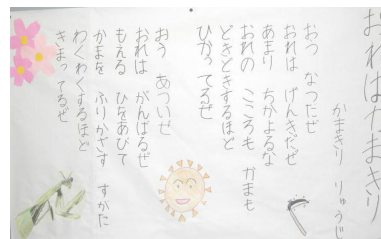 おれはかまきり
かまきり りゅうじ
おう なつだぜ
おれは げんきだぜ
あまり ちかよるな
おれの こころも かまも
どきどきするほど
ひかってるぜ
おう あついぜ
おれは がんばるぜ
もえる ひをあびて
かまを ふりかざす すがた
わくわくするほど
きまってるぜ